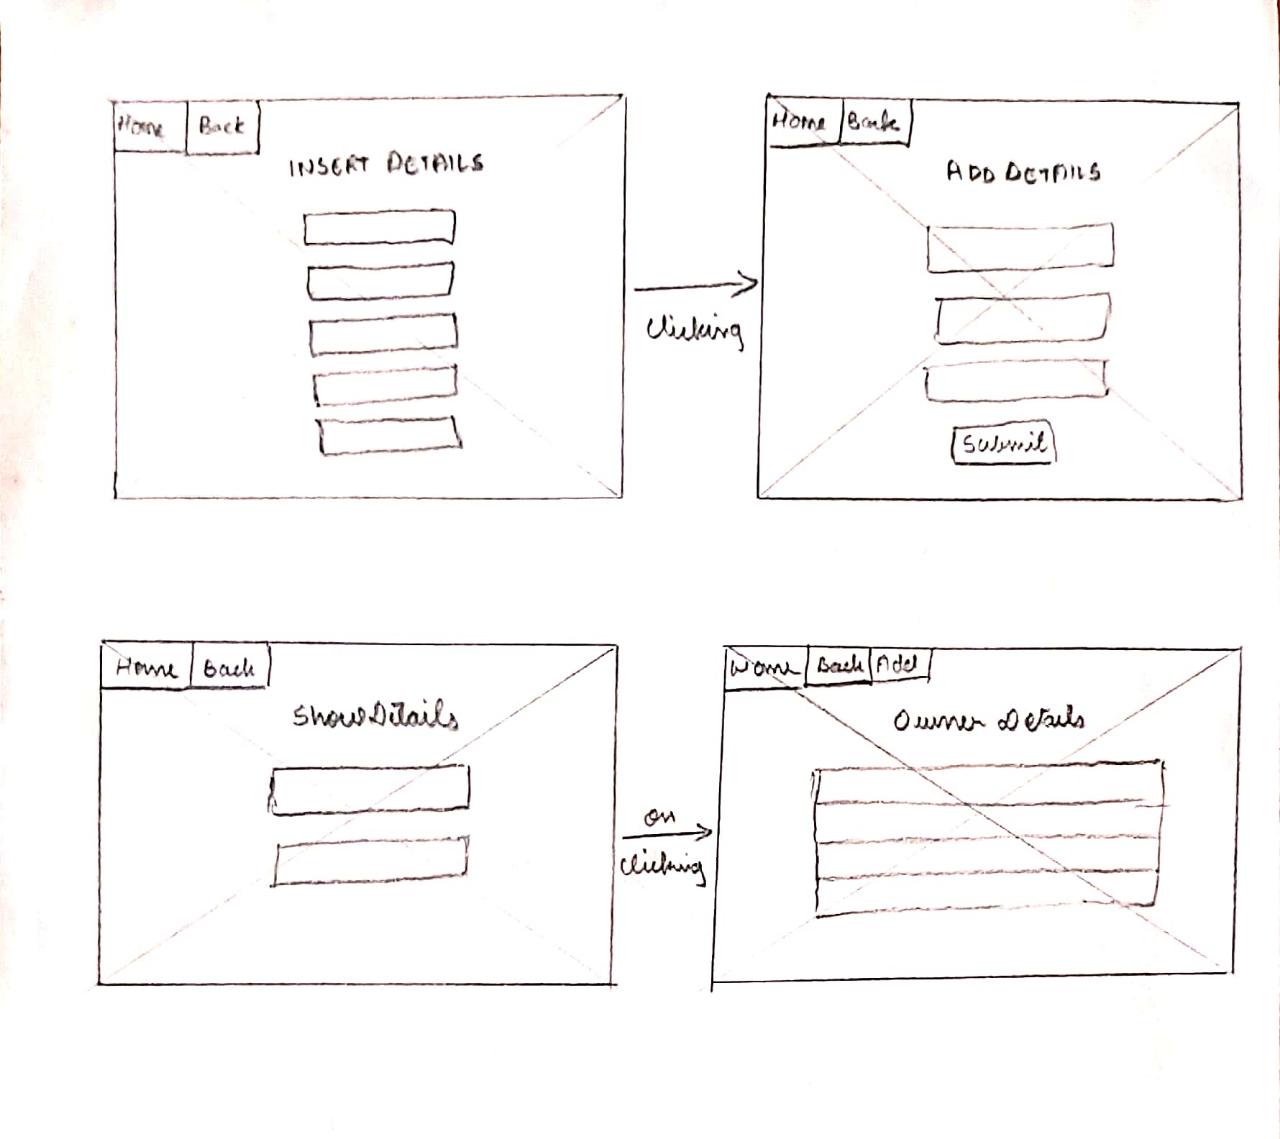 Home Back
INSERT DETAILS
clicking
Home Back
ADD DETAILS
Submit
Home Back
Show Details
on
clicking
Home Back Add
Owner Details